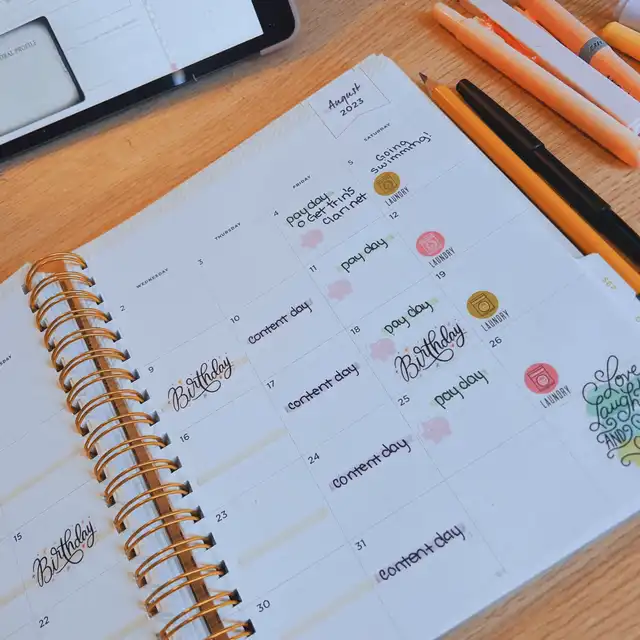 August
2023
WEDNESDAY
THURSDAY
FRIDAY
SATURDAY
2
3
4
payday
o Get Trin's
clarinet
5
Going
swimming!
LAUNDRY
9
Birthday
10
content day
11
pay day
12
LAUNDRY
15
Birthday
16
17
content day
18
pay day
Birthday
19
LAUNDRY
22
23
24
content day
25
pay day
26
LAUNDRY
30
31
content day
Love